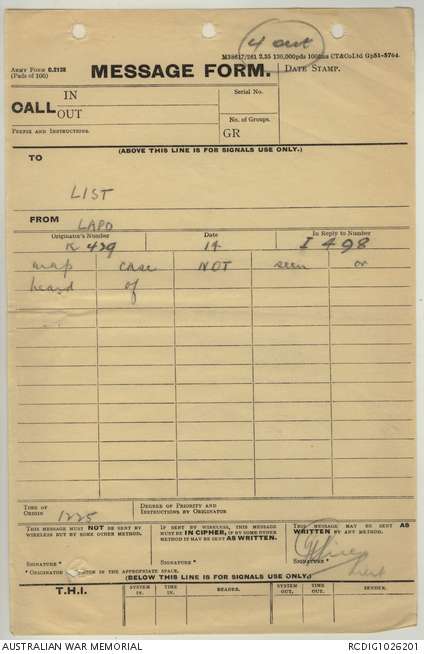 4 out
M38617/261 2.35 130,000pds 100lvs CT&CoLtd Gp51-5764.
ARMY FORM C.2128
(Pads of 100)
MESSAGE FORM.
DATE STAMP.
CALL IN
OUT
PREFIX AND INSTRUCTIONS.
Serial No.
No. of Groups.
GR
(ABOVE THIS LINE IS FOR SIGNALS USE ONLY.)
TO
LIST
FROM LAPO
Originator's Number Date In Reply to Number
K 479 14 I 498
map case NOT seen or
heard of
TIME OF ORIGIN 1225
DEGREE OF PRIORITY AND INSTRUCTIONS BY ORIGINATOR
THIS MESSAGE MUST NOT BE SENT BY WIRELESS BUT BY SOME OTHER METHOD.
IF SENT BY WIRELESS, THIS MESSAGE MUST BE IN CIPHER, IF BY SOME OTHER METHOD IT MAY BE SENT AS WRITTEN.
THIS MESSAGE MAY BE SENT AS WRITTEN BY ANY METHOD.
SIGNATURE * SIGNATURE * SIGNATURE *
Lieut
(BELOW THIS LINE IS FOR SIGNALS USE ONLY.)
T.H.I. SYSTEM IN. TIME IN. READER. SYSTEM OUT. TIME OUT. SENDER.
AUSTRALIAN WAR MEMORIAL RCDIG1026201